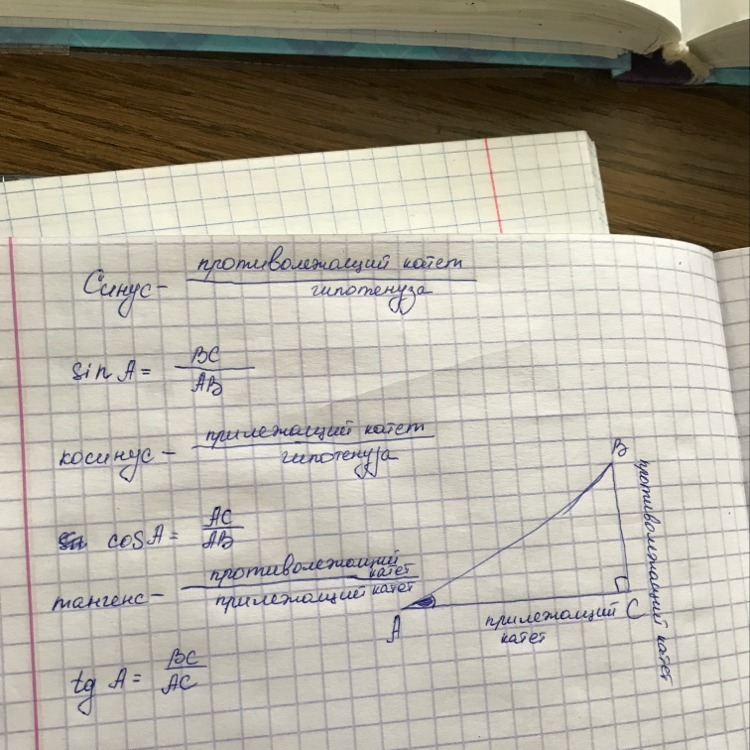 Синус - противолежащий катет
гипотенуза
sin A = BC
AB
косинус - прилежащий катет
гипотенуза
cos A = AC
AB
тангенс - противолежащий катет
прилежащий катет
tg A = BC
AC
B
противолежащий катет
A
прилежащий
катет
C